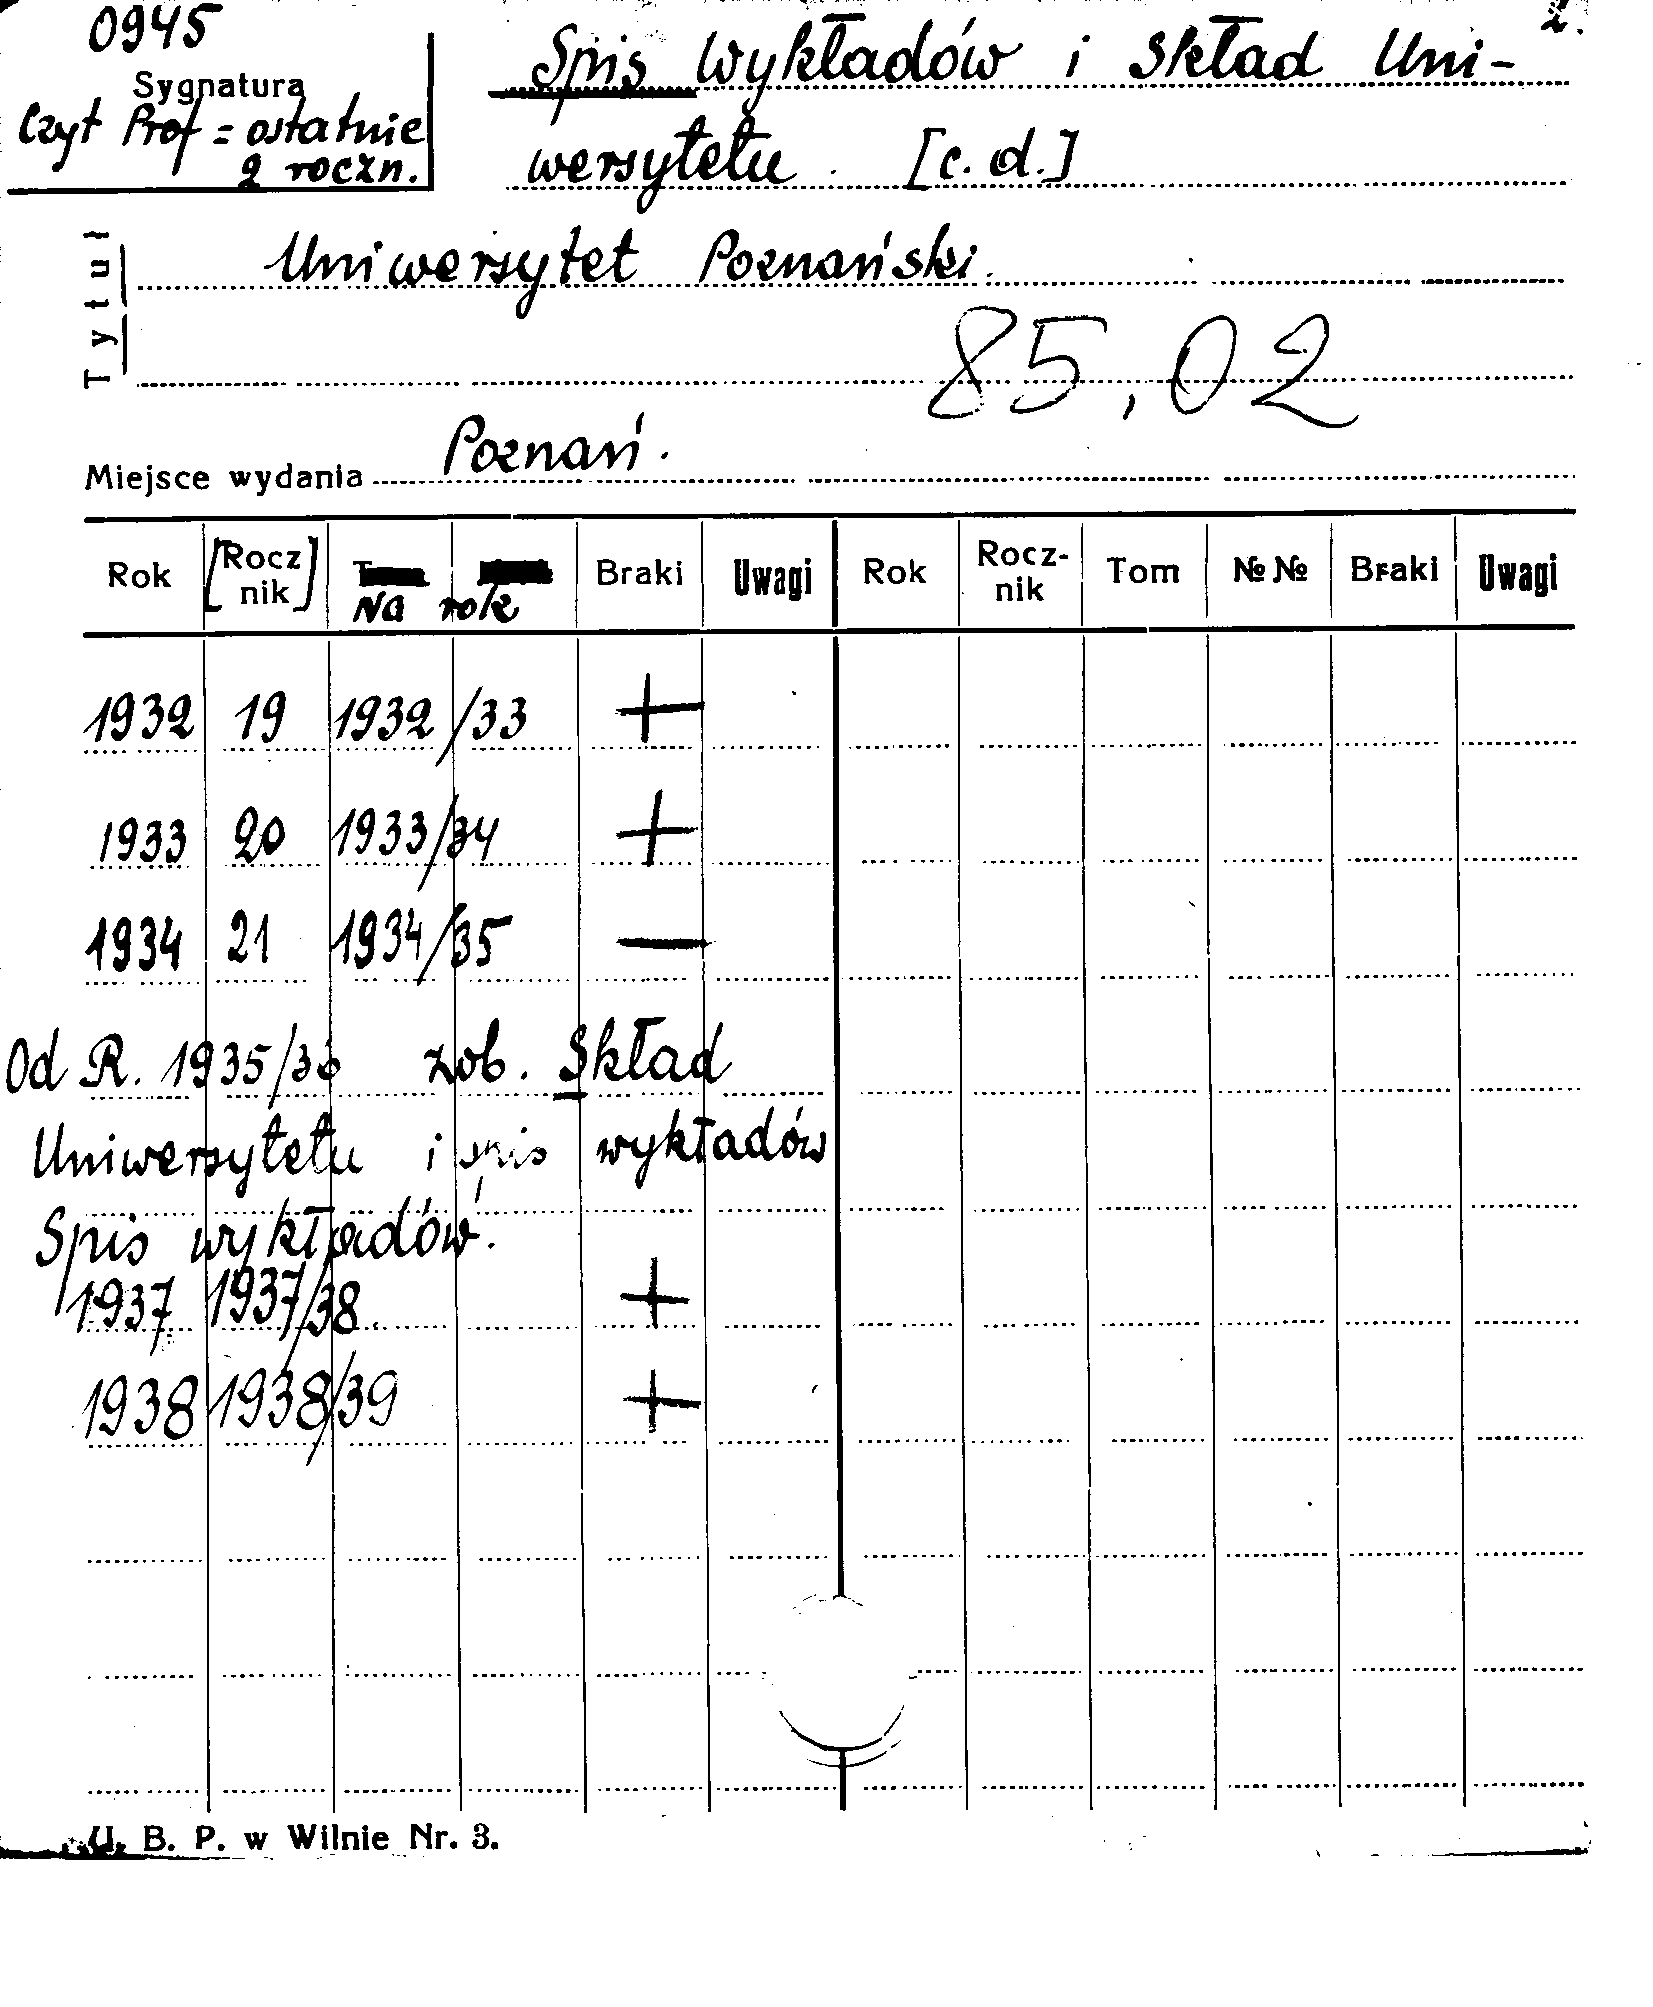 0945
2.
Sygnatura
Czyt Prof = ostatnie
2 roczn.
Spis Wykładów i Skład Uni-
wersytetu. [c. d.]
Tytuł
Uniwersytet Poznański.
85,02
Miejsce wydania Poznań.
Rok [Rocz nik] Na rok Braki Uwagi Rok Rocz-nik Tom №№ Braki Uwagi
1932 19 1932/33 +
1933 20 1933/34 +
1934 21 1934/35 —
Od R. 1935/36 zob. Skład
Uniwersytetu i spis wykładów
Spis wykładów.
1937 1937/38. +
1938 1938/39 +
U. B. P. w Wilnie Nr. 3.